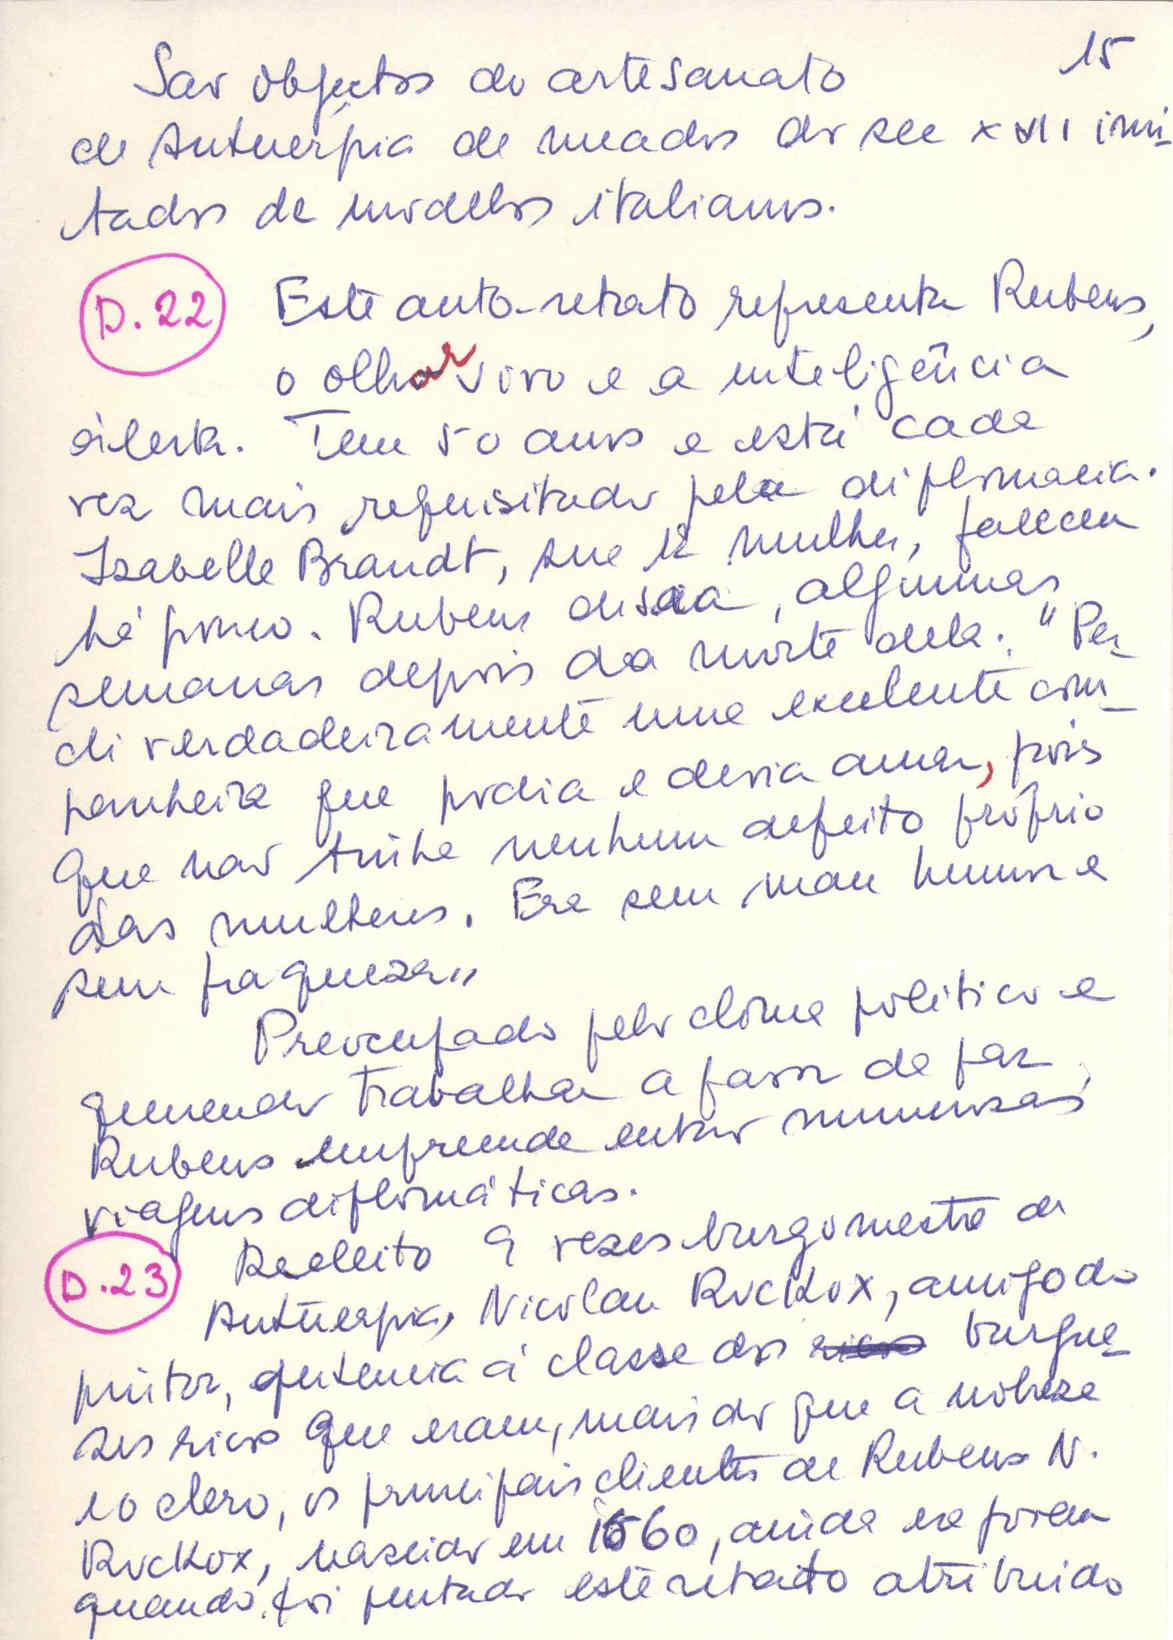 15
São objectos do artesanato
de Antuérpia de meados do sec XVII imi-
tados de modelos italianos.
D.22 Este auto-retrato representa Rubens,
o olhar vivo e a inteligência
alerta. Tem 50 anos e está cada
vez mais requisitado pela diplomacia.
Isabelle Brandt, sua 1ª mulher, faleceu
há pouco. Rubens dizia, algumas
semanas depois da morte dela: "Per-
di verdadeiramente uma excelente com-
panheira que podia e devia amar, pois
que não tinha nenhum defeito próprio
das mulheres. Era sem mau humor e
sem fraqueza"
Preocupado pelo clima político e
querendo trabalhar a favor da paz,
Rubens empreende então numerosas
viagens diplomáticas.
D.23 Reeleito 9 vezes burgomestre de
Antuérpia, Nicolau Rockox, amigo do
pintor, pertencia à classe dos burgue-
ses ricos que eram, mais do que a nobreza
e o clero, os principais clientes de Rubens N.
Rockox, nascido em 1560, ainda era jovem
quando foi pintado este retrato atribuido